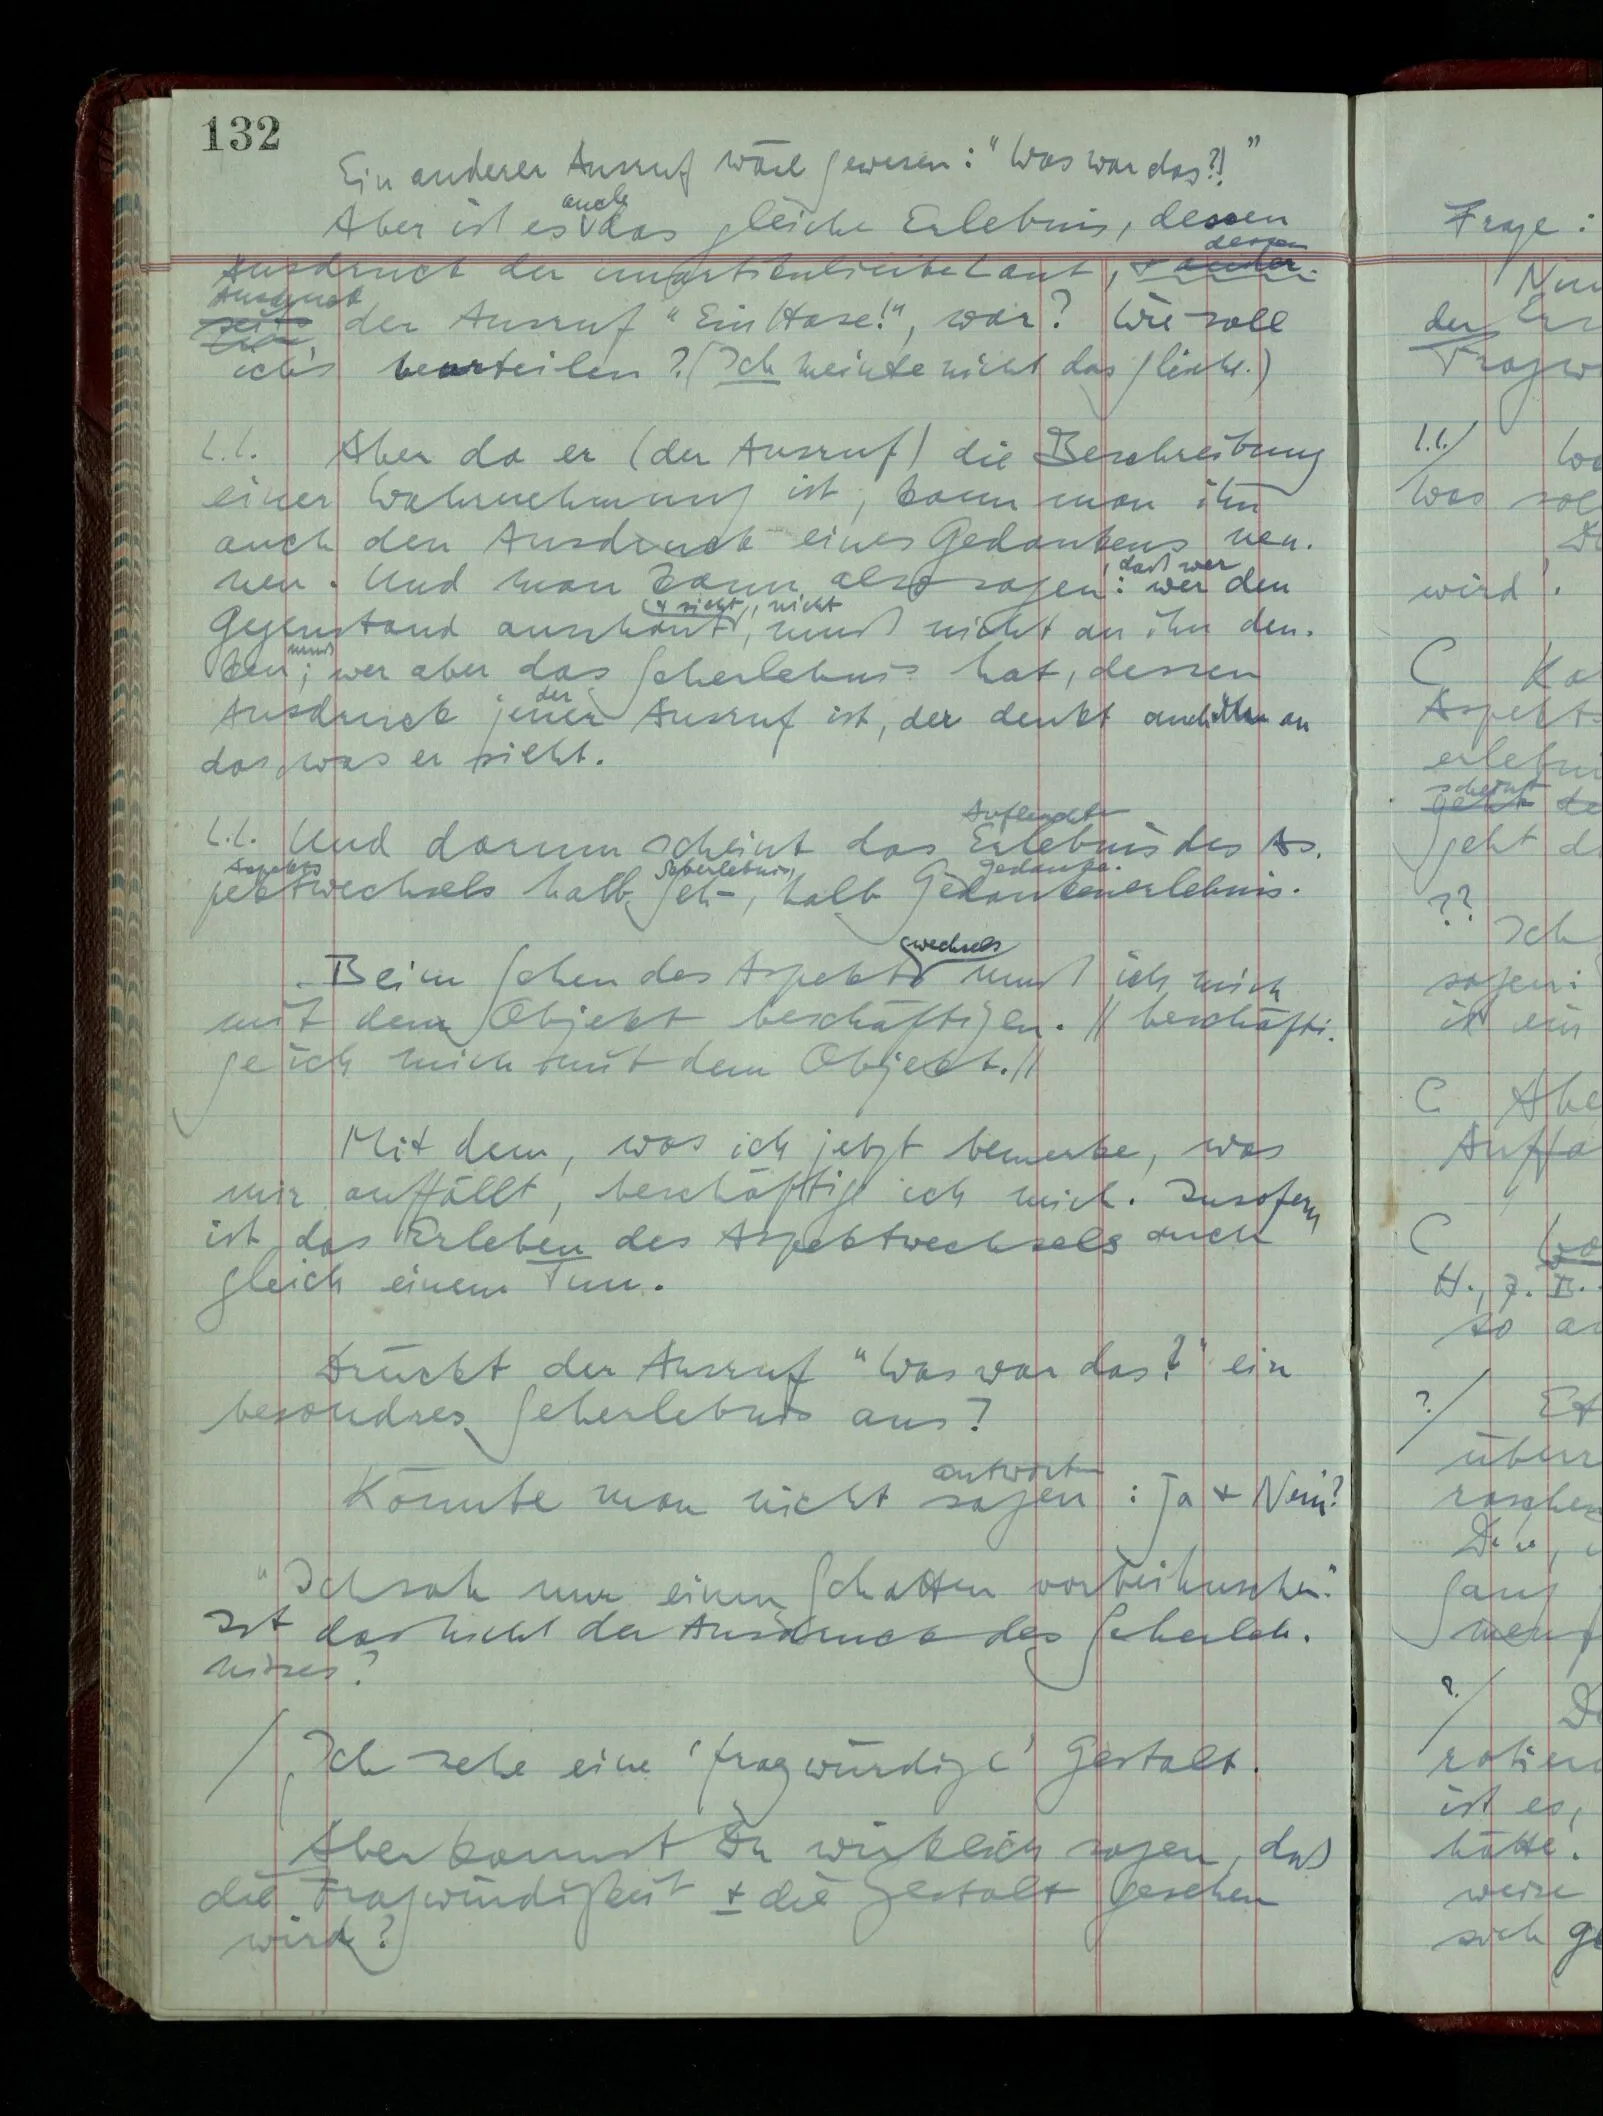 132
Ein anderer Ausruf wäre gewesen: "Was war das?!"
auch
Aber ist es das gleiche Erlebnis, dessen
dessen
Ausdruck der unartikulierte Laut, +
Ausdruck
der Ausruf "Ein Hase!", war? Wie soll
ich's beurteilen? (Ich meinte nicht das gleiche.)
Aber da er (der Ausruf) die Beschreibung
einer Wahrnehmung ist, kann man ihn
auch den Ausdruck eines Gedankens nen-
, daß wer
nen. Und man kann also sagen: wer den
+ sieht, nicht
Gegenstand anschaut, muß nicht an ihn den-
muß
ken; wer aber das Seherlebnis hat, dessen
der
Ausdruck jener Ausruf ist, der denkt auch an
das was er sieht.
Aufleuchten
Und darum scheint das Erlebnis des As-
Aspekts Seherlebnis, Gedanke.
pektwechsels halb Seh-, halb Gedankenerlebnis.
wechsels
Beim Sehen des Aspekts muß ich mich
mit dem Objekt beschäftigen. // beschäfti-
ge ich mich mit dem Objekt. //
Mit dem, was ich jetzt bemerke, was
mir auffällt, beschäftige ich mich. Insofern
ist das Erleben des Aspektwechsels auch
gleich einem Tun.
Drückt der Ausruf "Was war das?" ein
besondres Seherlebnis aus?
antworten
Könnte man nicht sagen: Ja + Nein?
"Ich sah nur einen Schatten vorbeihuschen."
Ist das nicht der Ausdruck des Seherleb-
nisses?
/ Ich sehe eine 'fragwürdige' Gestalt.
Aber kannst Du wirklich sagen, daß
die Fragwürdigkeit + die Gestalt gesehen
wird?
Frage:
Nun
der
was soll
wird!
C
Aspekts
scheint
geht
?? Ich
sagen:
ist ein
C Abe
Auffa
C
H., z.B.
so
?/ Et
überr
raschen
ganz
?/
ist es,
hätte.
weise
sich ge